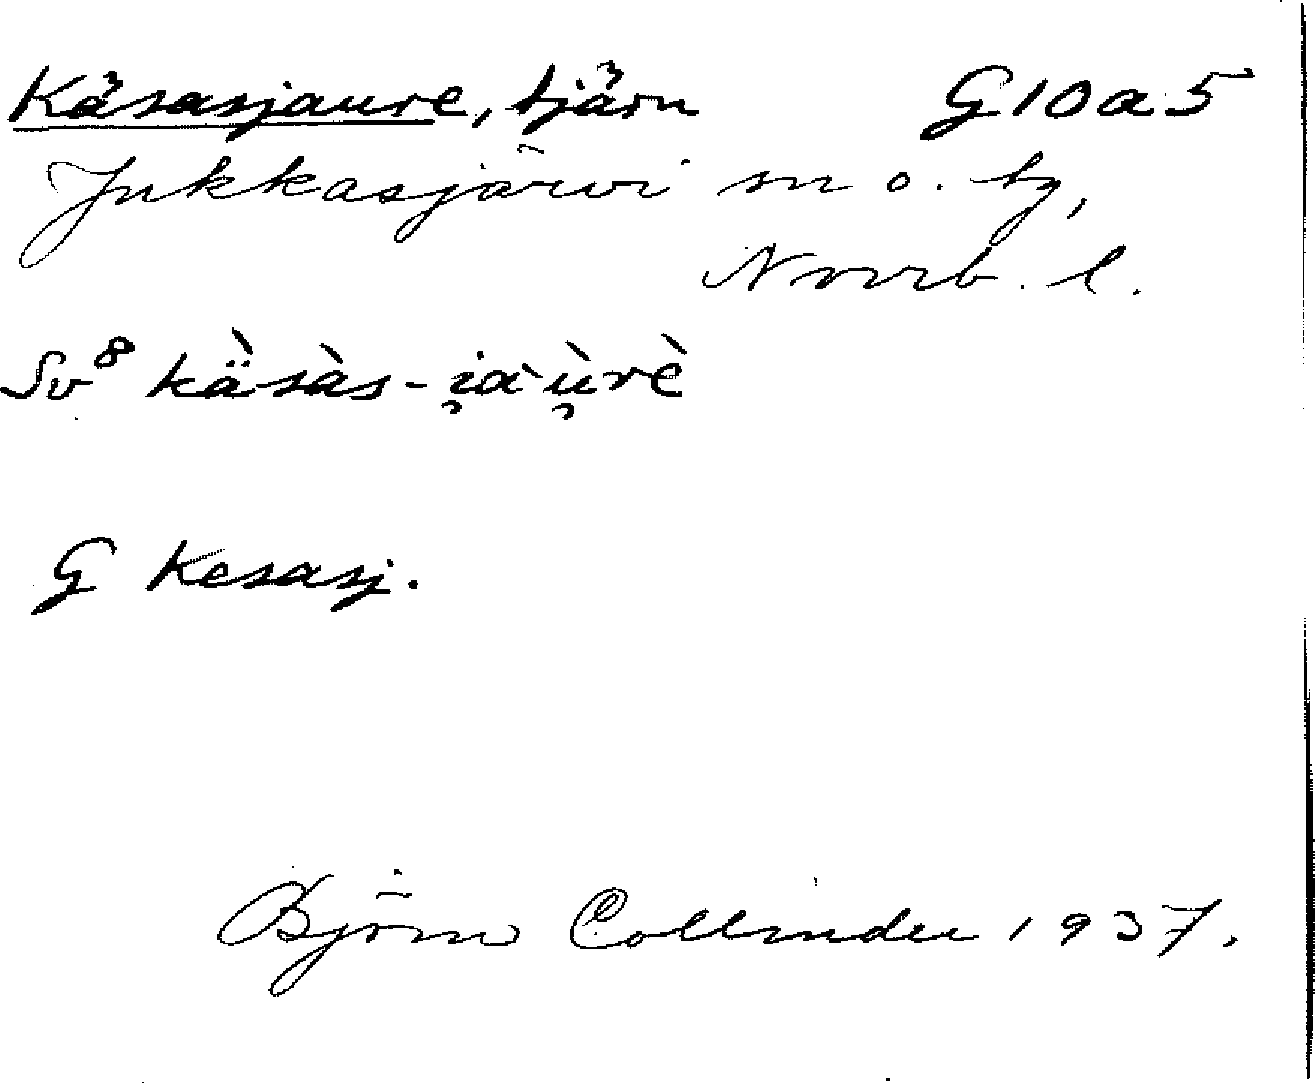 Käsasjaure, tjärn G10a5
Jukkasjärvi sn o. tg,
Norrb. l.
Sv⁸ kä̀sàs-i̯àù̯rè
G Kesasj.
Björn Collinder 1937.